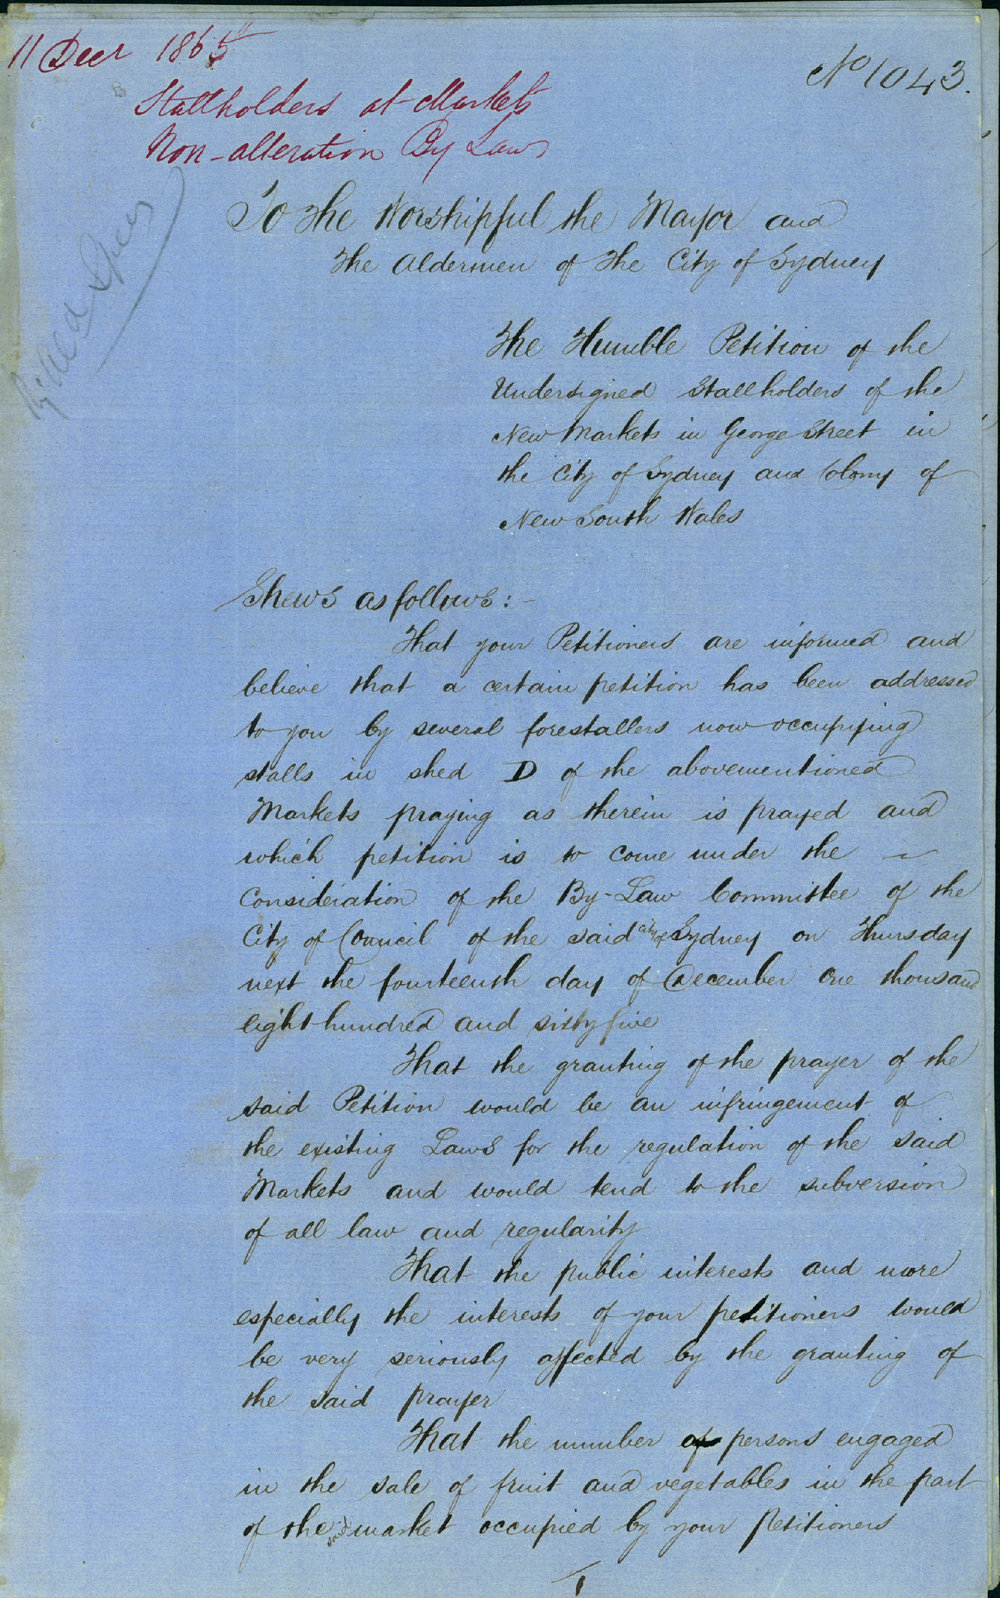 11 Decr 1865
No 1043.
Stallholders at Markets
Non-alteration By Laws
To the Worshipful the Mayor and
the Aldermen of the City of Sydney
The Humble Petition of the
Undersigned Stallholders of the
New Markets in George Street in
the City of Sydney and Colony of
New South Wales
Shews as follows:-
That your Petitioners are informed and
believe that a certain petition has been addressed
to you by several forestallers now occupying
stalls in shed D of the abovementioned
Markets praying as therein is prayed and
which petition is to come under the
Consideration of the By-Law Committee of the
City of Council of the said city of Sydney on Thursday
next the fourteenth day of December One thousand
eight hundred and sixty five
That the granting of the prayer of the
said Petition would be an infringement of
the existing Laws for the regulation of the said
Markets and would tend to the subversion
of all law and regularity
That the public interests and more
especially the interests of your petitioners would
be very seriously affected by the granting of
the said prayer
That the number of persons engaged
in the sale of fruit and vegetables in the part
of the said market occupied by your Petitioners
1